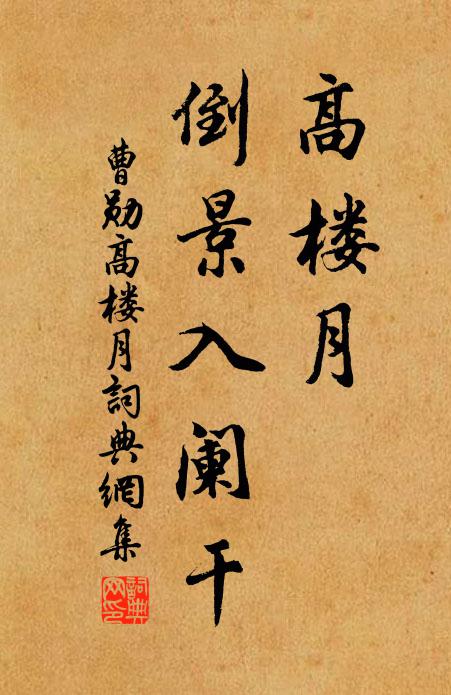 高楼月
倒景入阑干
曹勋高楼月詞典網集
詞典网印